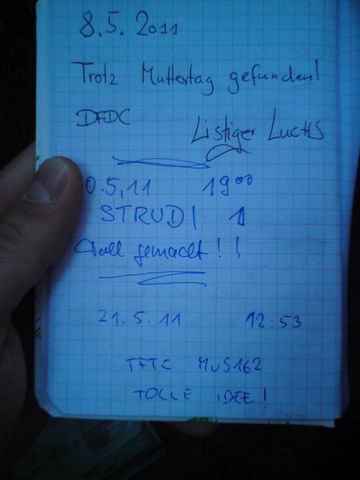 8.5.2011
Trotz Muttertag gefunden!
DFDC
Listiger LuchS
0.5,11 19⁰⁰
STRUDI 1
Toll gemacht!!
21.5.11 12:53
TFTC MUS162
TOLLE IDEE!